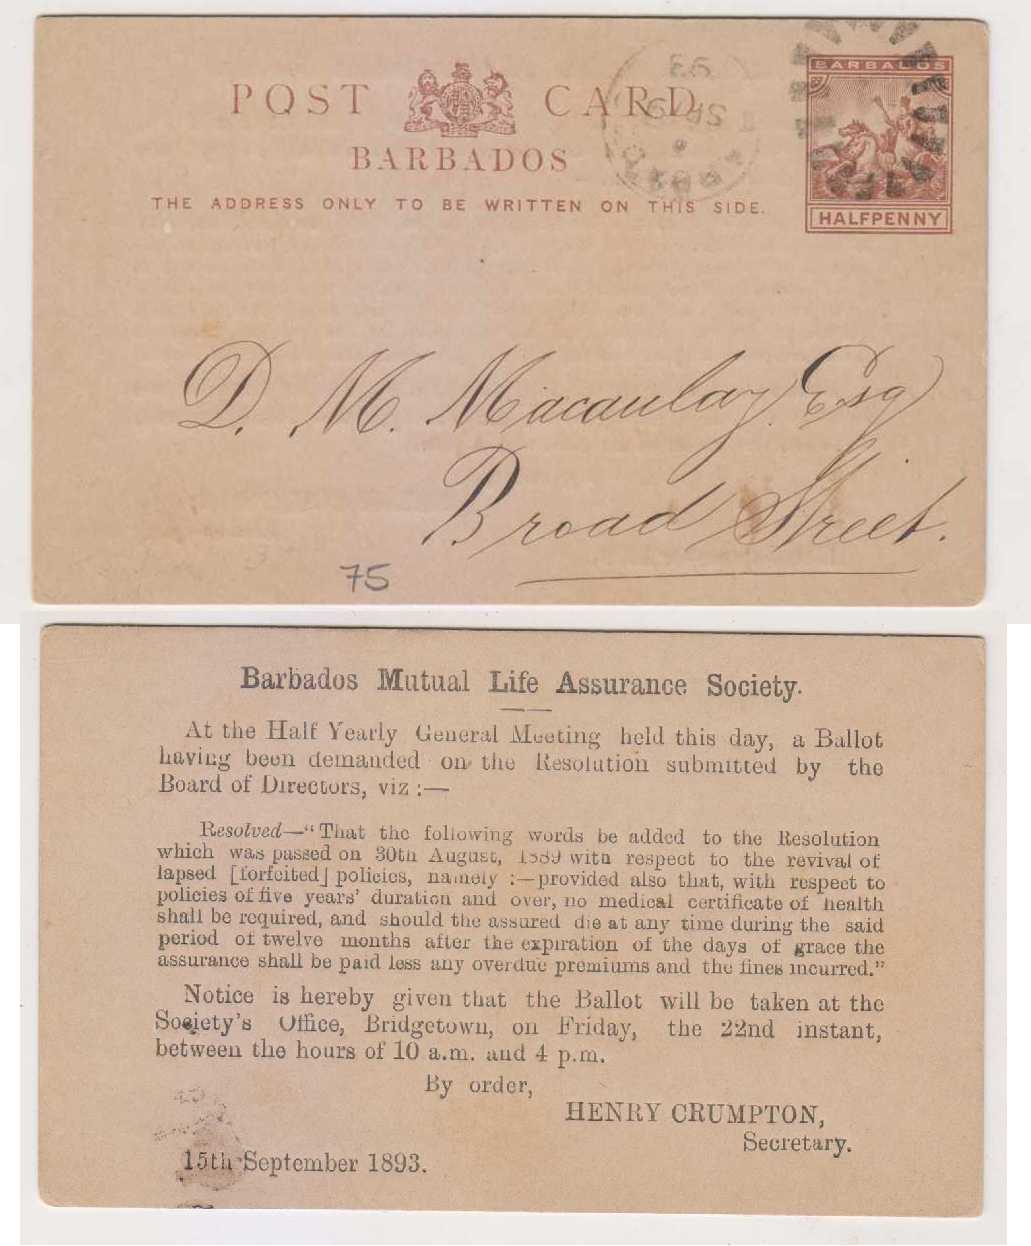 POST CARD
BARBADOS
THE ADDRESS ONLY TO BE WRITTEN ON THIS SIDE.
BARBADOS
HALFPENNY
93
SP 19
D. M. Macaulay Esq
Broad Street.
75
Barbados Mutual Life Assurance Society.
At the Half Yearly General Meeting held this day, a Ballot
having been demanded on the Resolution submitted by the
Board of Directors, viz :—
Resolved—“That the following words be added to the Resolution
which was passed on 30th August, 1889 with respect to the revival of
lapsed [forfeited] policies, namely :—provided also that, with respect to
policies of five years’ duration and over, no medical certificate of health
shall be required, and should the assured die at any time during the said
period of twelve months after the expiration of the days of grace the
assurance shall be paid less any overdue premiums and the fines incurred.”
Notice is hereby given that the Ballot will be taken at the
Society’s Office, Bridgetown, on Friday, the 22nd instant,
between the hours of 10 a.m. and 4 p.m.
By order,
HENRY CRUMPTON,
Secretary.
15th September 1893.